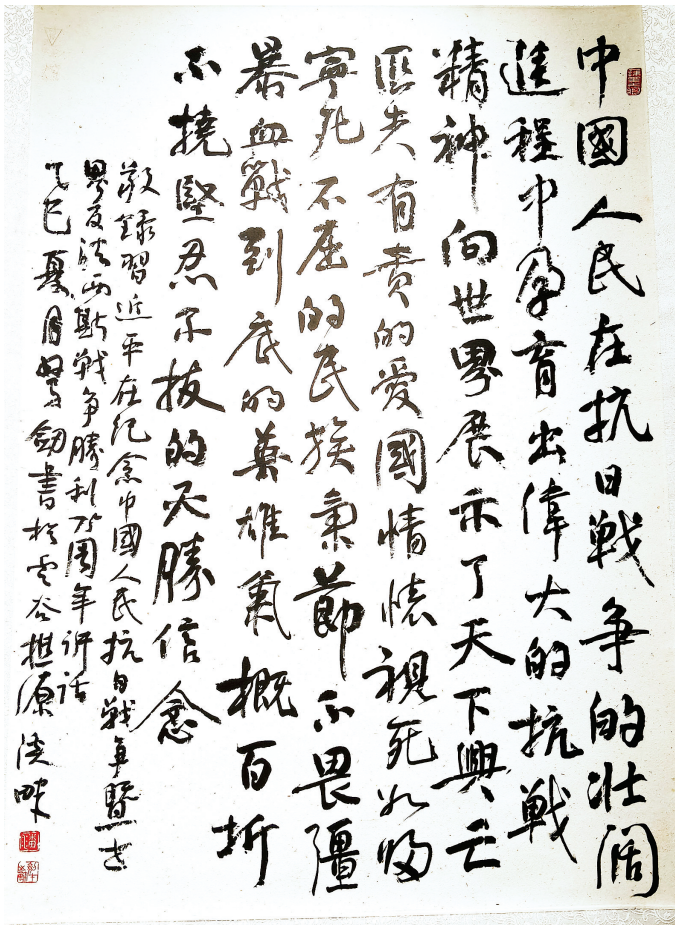 中國人民在抗日戰争的壮阔
進程中孕育出偉大的抗戰
精神向世界展示了天下興亡
匹夫有责的爱國情懷視死如归
寧死不屈的民族氣節不畏彊
暴血戰到底的英雄氣概百折
不撓堅忍不拔的必勝信念
敬録習近平在纪念中國人民抗日戰争暨世
界反法西斯戰争勝利75周年讲话
乙巳夏月 劍書於雲谷